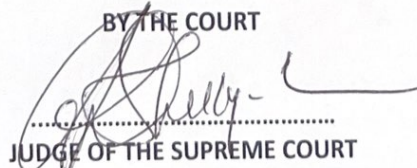 BY THE COURT
........................................................
JUDGE OF THE SUPREME COURT